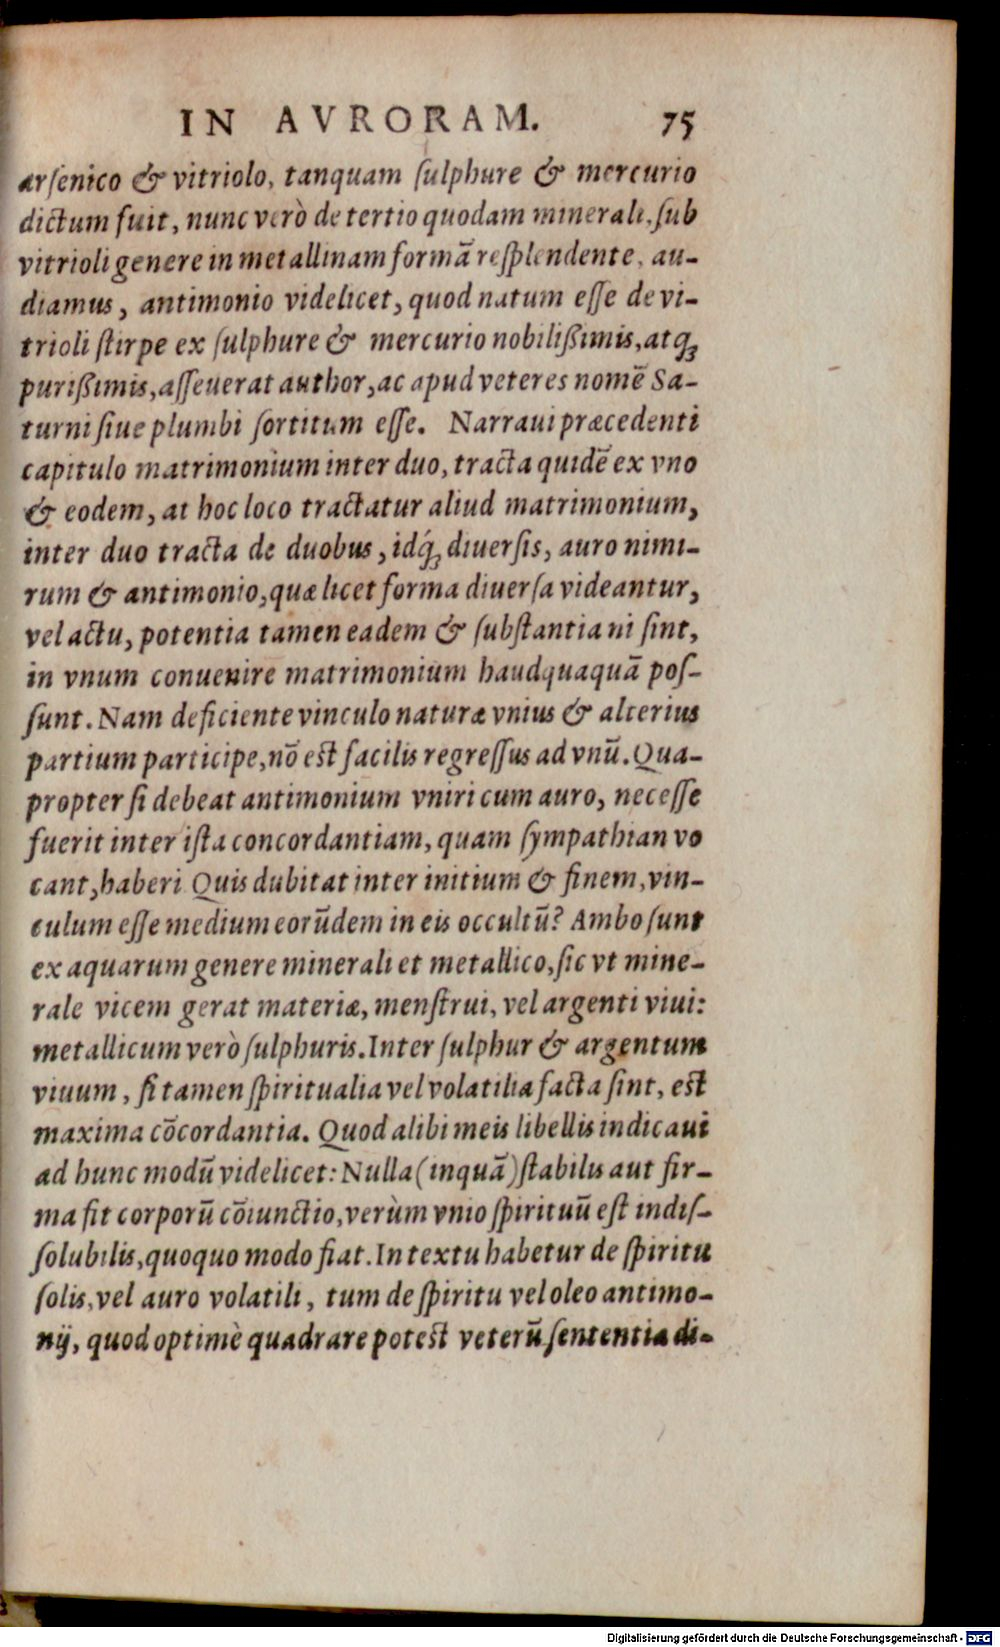 IN AVRORAM. 75
arſenico & vitriolo, tanquam ſulphure & mercurio
dictum fuit, nunc verò de tertio quodam minerali, ſub
vitrioli genere in metallinam formā reſplendente, au-
diamus, antimonio videlicet, quod natum eſſe de vi-
trioli ſtirpe ex ſulphure & mercurio nobilißimis, atq́;
purißimis, aſſeuerat author, ac apud veteres nomē Sa-
turni ſiue plumbi ſortitum eſſe. Narraui præcedenti
capitulo matrimonium inter duo, tracta quidē ex vno
& eodem, at hoc loco tractatur aliud matrimonium,
inter duo tracta de duobus, idq́; diuerſis, auro nimi-
rum & antimonio, quæ licet forma diuerſa videantur,
vel actu, potentia tamen eadem & ſubſtantia ni ſint,
in vnum conuenire matrimonium haudquaquā poſ-
ſunt. Nam deficiente vinculo naturæ vnius & alterius
partium participe, nō est facilis regreſſus ad vnū. Qua-
propter ſi debeat antimonium vniri cum auro, neceſſe
fuerit inter iſta concordantiam, quam ſympathian vo
cant, haberi Quis dubitat inter initium & finem, vin-
culum eſſe medium eorūdem in eis occultū? Ambo ſunt
ex aquarum genere minerali et metallico, ſic vt mine-
rale vicem gerat materiæ, menſtrui, vel argenti viui:
metallicum verò ſulphuris. Inter ſulphur & argentum
viuum, ſi tamen ſpiritualia vel volatilia facta ſint, est
maxima cōcordantia. Quod alibi meis libellis indicaui
ad hunc modū videlicet: Nulla (inquā) ſtabilis aut fir-
ma fit corporū cōiunctio, verùm vnio ſpirituū eſt indiſ-
ſolubilis, quoquo modo fiat. In textu habetur de ſpiritu
ſolis, vel auro volatili, tum de ſpiritu vel oleo antimo-
nij, quod optimè quadrare potest veterū ſententia di-
Digitalisierung gefördert durch die Deutsche Forschungsgemeinschaft - DFG